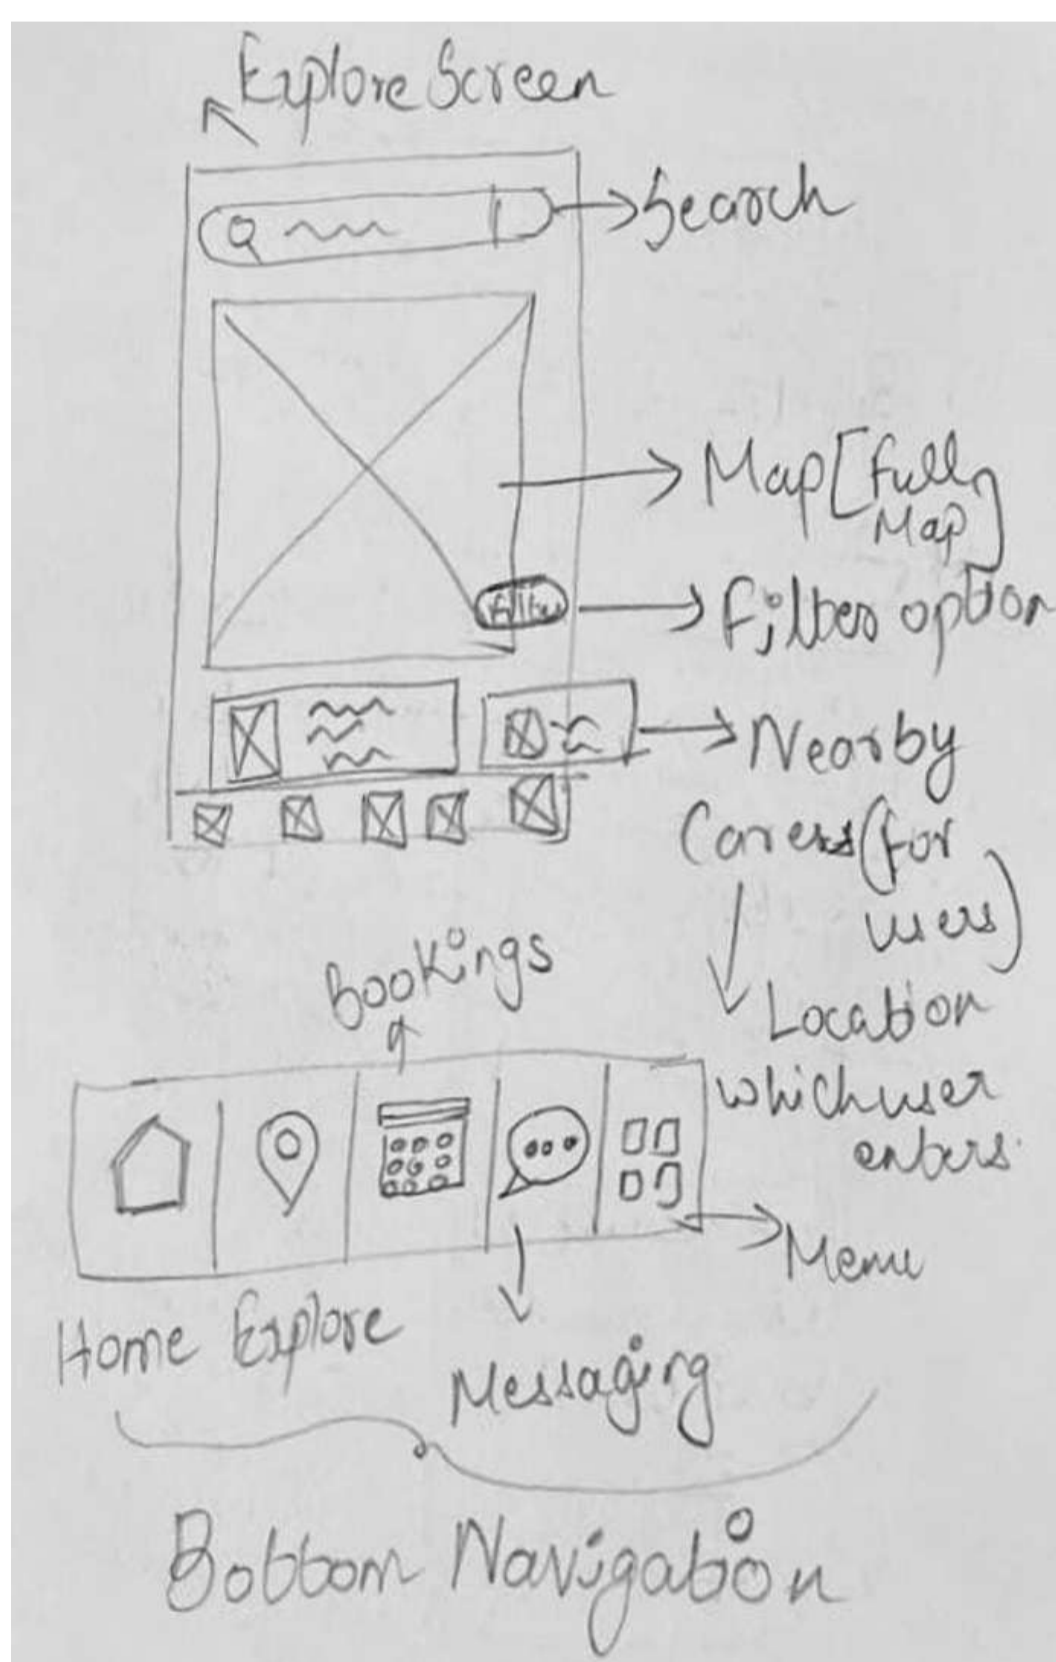 Explore Screen
Search
Map [Full
Map]
Filter
Filter option
Nearby
Carers (for
users)
Location
which user
enters.
Bookings
Menu
Home Explore
Messaging
Bottom Navigation